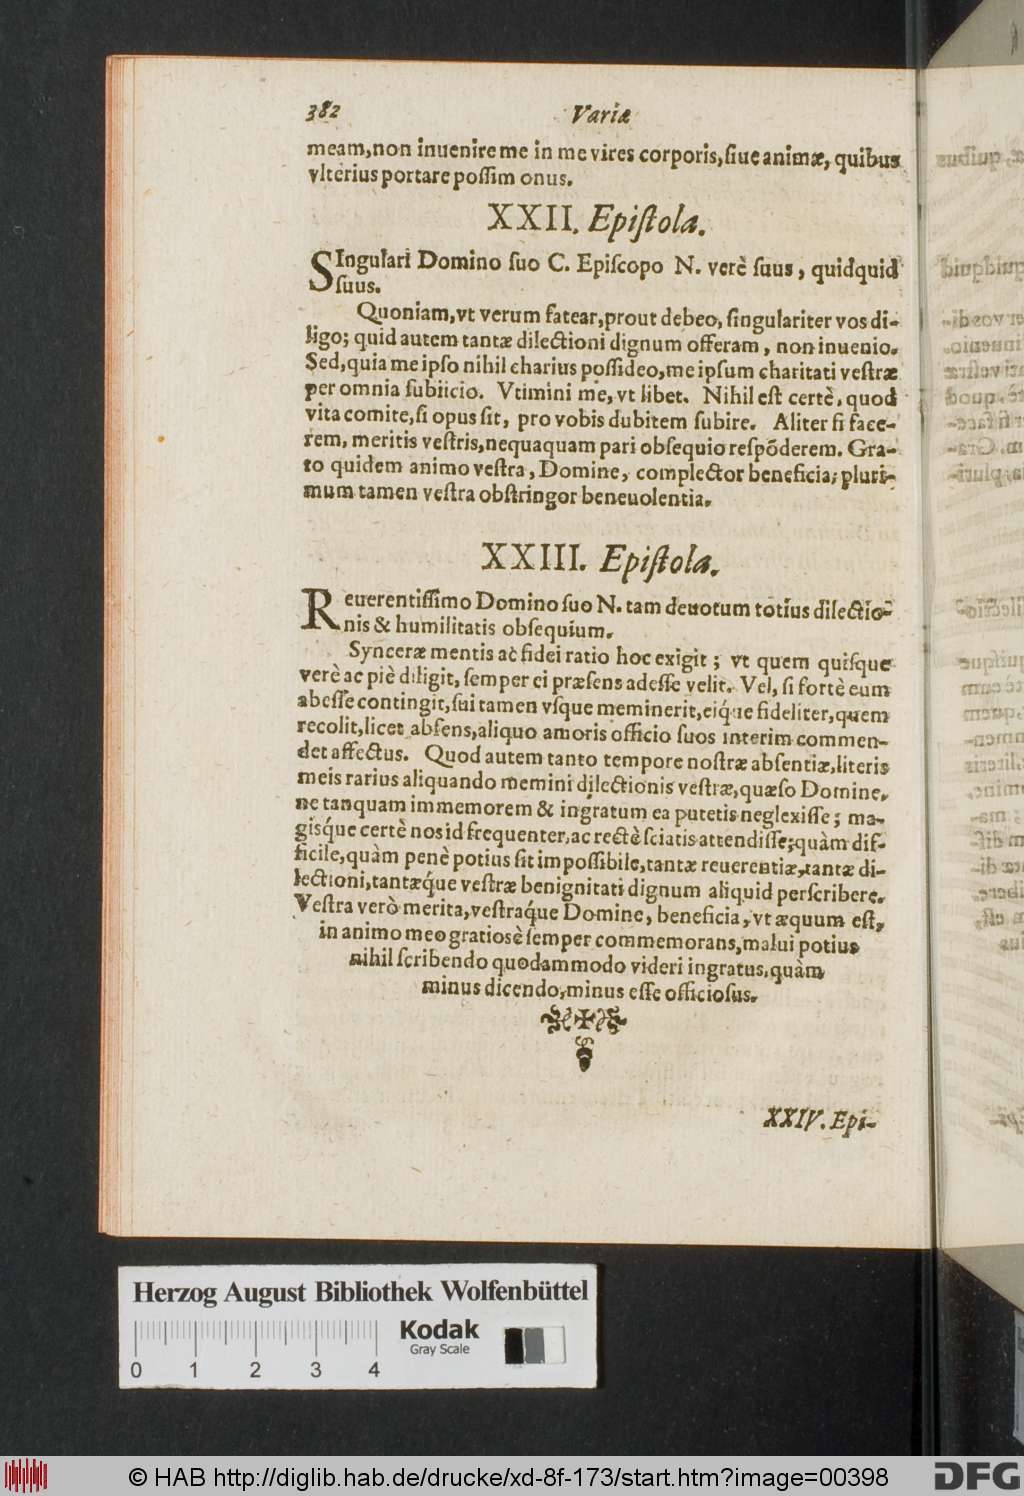 382 Variæ
meam, non inuenire me in me vires corporis, ſiue animæ, quibus
vlterius portare poſſim onus.
XXII. Epiſtola.
SIngulari Domino ſuo C. Epiſcopo N. verè ſuus, quidquid
ſuus.
Quoniam, vt verum fatear, prout debeo, ſingulariter vos di-
ligo; quid autem tantæ dilectioni dignum offeram, non inuenio.
Sed, quia me ipſo nihil charius poſſideo, me ipſum charitati veſtræ
per omnia ſubiicio. Vtimini me, vt libet. Nihil eſt certè, quod
vita comite, ſi opus ſit, pro vobis dubitem ſubire. Aliter ſi face-
rem, meritis veſtris, nequaquam pari obſequio reſpõderem. Gra-
to quidem animo veſtra, Domine, complector beneficia; pluri-
mum tamen veſtra obſtringor beneuolentia.
XXIII. Epiſtola.
Reuerentiſſimo Domino ſuo N. tam deuotum totius dilectio-
nis & humilitatis obſequium.
Synceræ mentis ac fidei ratio hoc exigit; vt quem quiſque
verè ac piè diligit, ſemper ei præſens adeſſe velit. Vel, ſi fortè eum
abeſſe contingit, ſui tamen vſque meminerit, eiq́ue fideliter, quem
recolit, licet abſens, aliquo amoris officio ſuos interim commen-
det affectus. Quod autem tanto tempore noſtræ abſentiæ, literis
meis rarius aliquando memini dilectionis veſtræ, quæſo Domine,
ne tanquam immemorem & ingratum ea putetis neglexiſſe; ma-
gisq́ue certè nos id frequenter, ac rectè ſciatis attendiſſe; quàm dif-
ficile, quàm penè potius ſit impoſſibile, tantæ reuerentiæ, tantæ di-
lectioni, tantæq́ue veſtræ benignitati dignum aliquid perſcribere.
Veſtra verò merita, veſtraq́ue Domine, beneficia, vt æquum eſt,
in animo meo gratiosè ſemper commemorans, malui potius
nihil ſcribendo quodammodo videri ingratus, quàm
minus dicendo, minus eſſe officioſus.
XXIV. Epi-
Herzog August Bibliothek Wolfenbüttel
Kodak
Gray Scale
0 1 2 3 4
© HAB http://diglib.hab.de/drucke/xd-8f-173/start.htm?image=00398
DFG